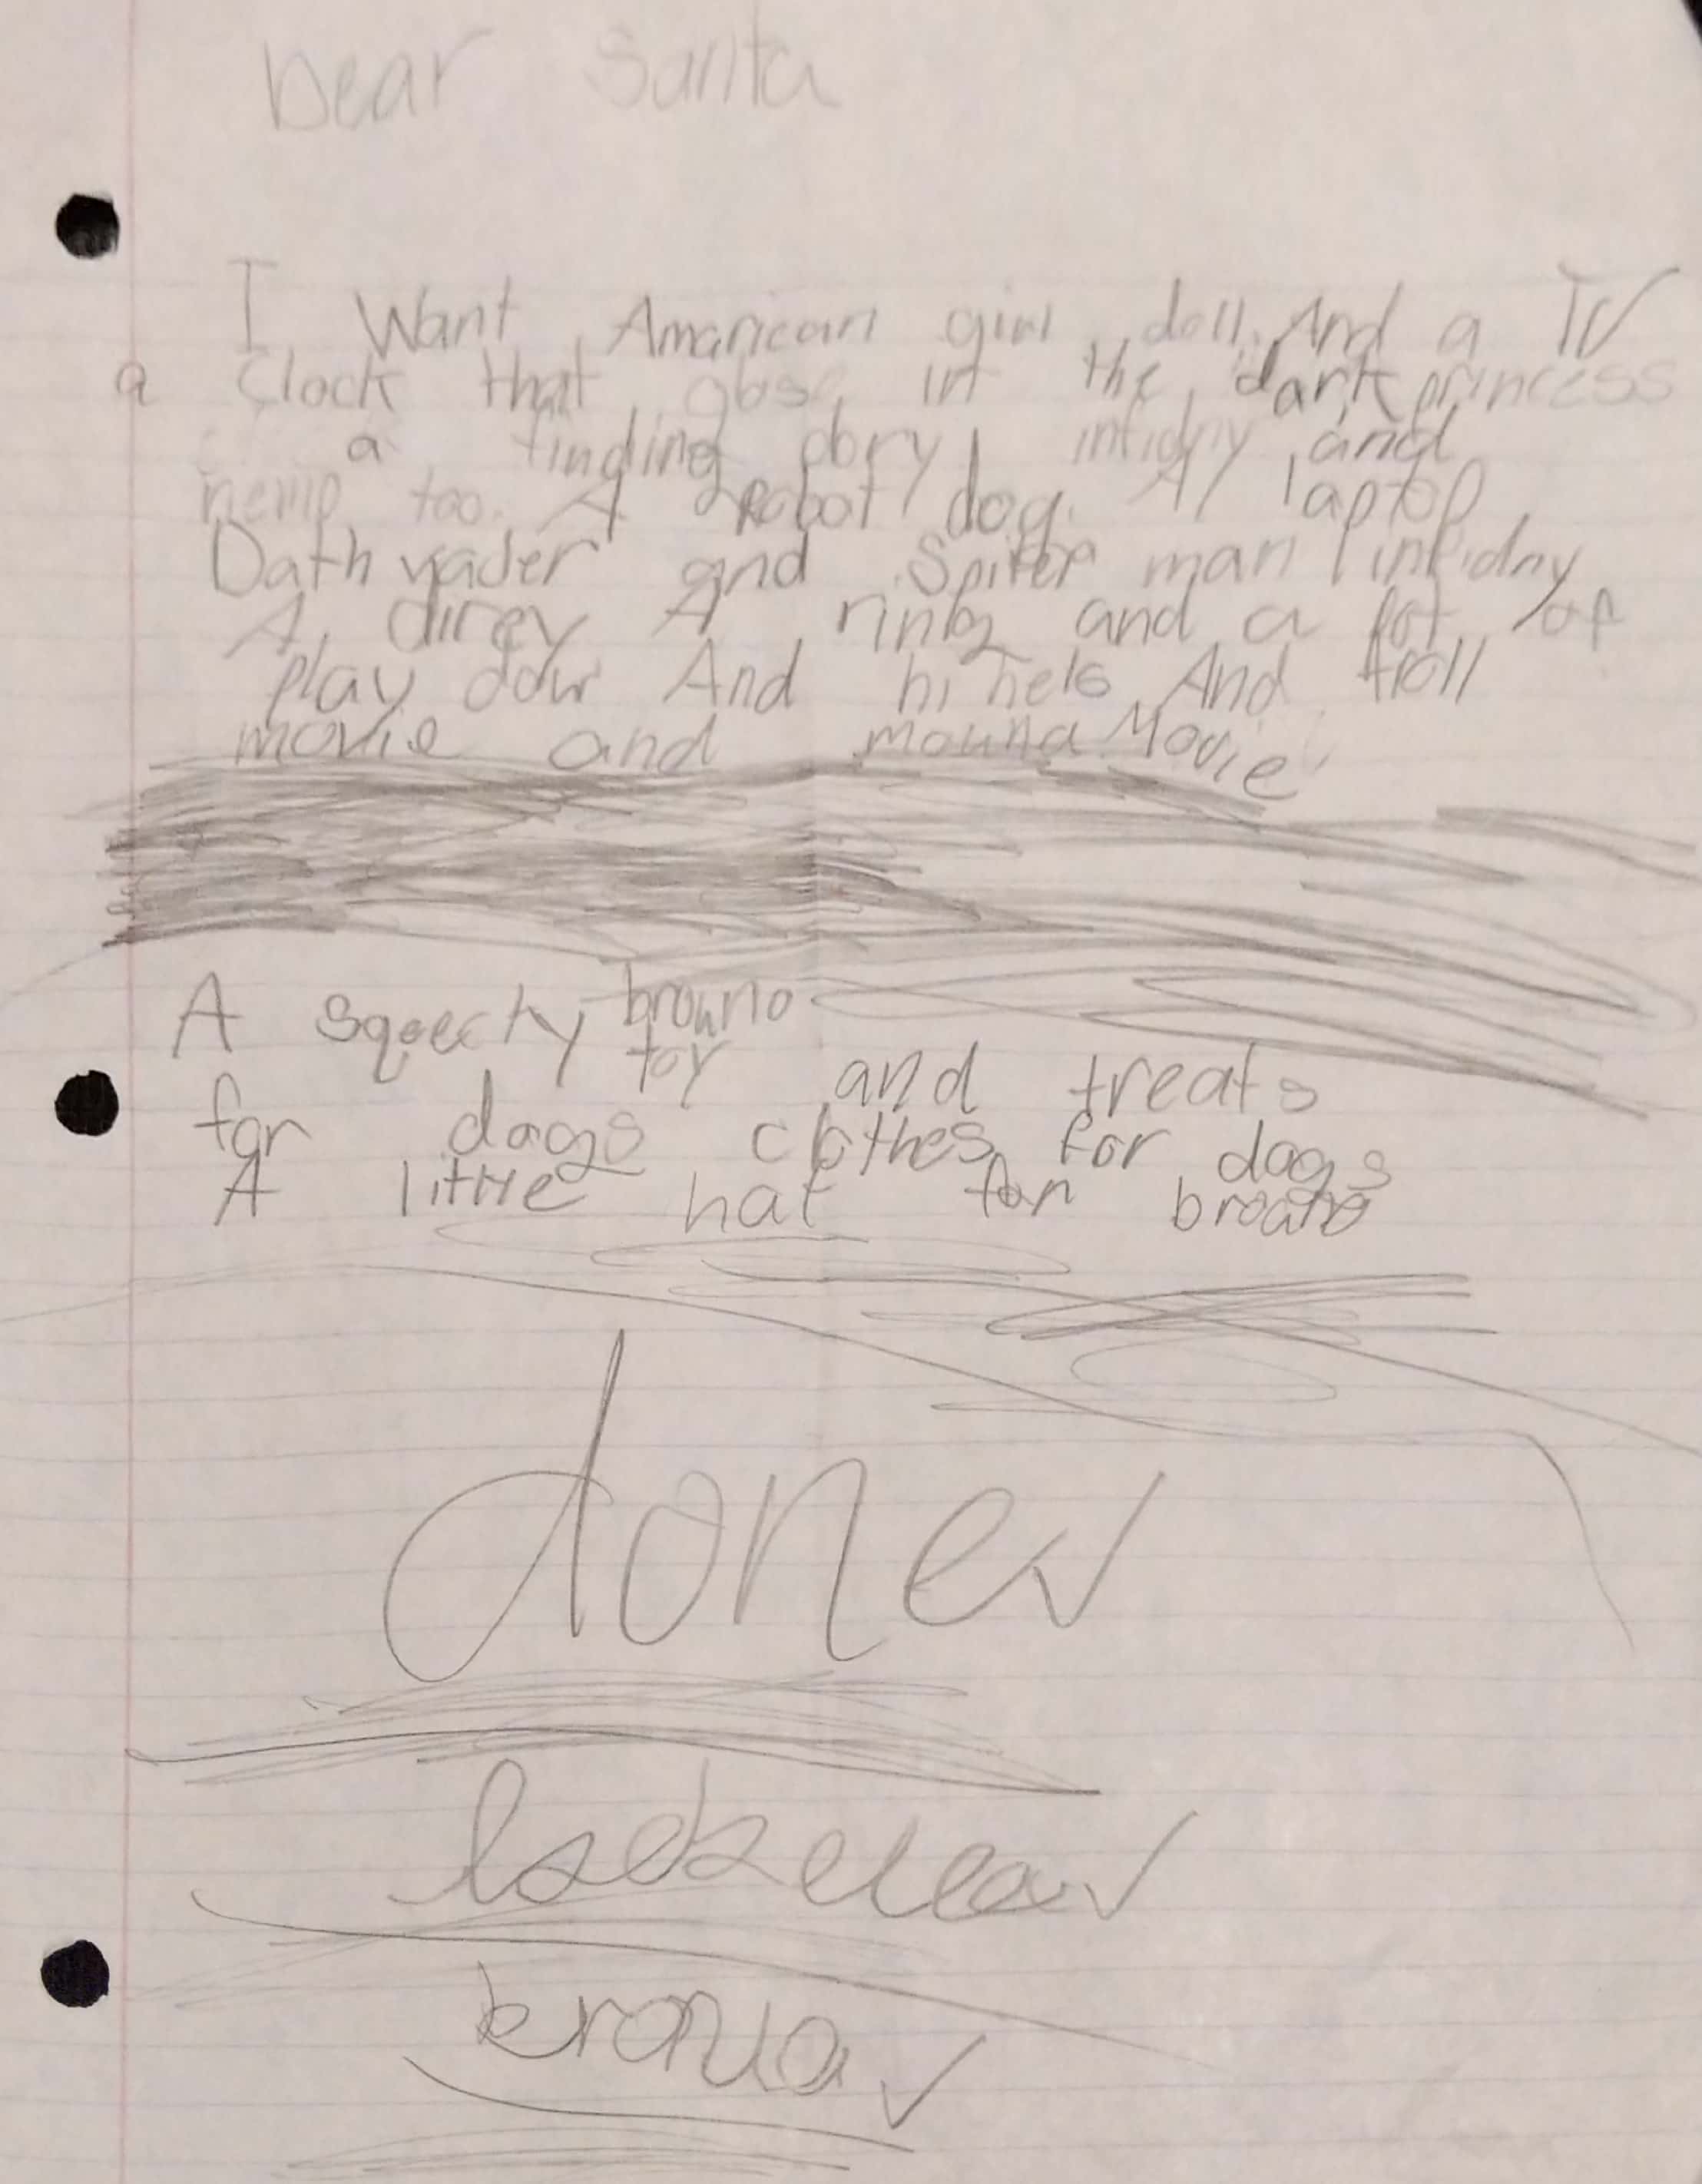 Dear Santa
I Want Amarican girl doll. And a TV
a Clock that glose in the dark princess
a finding dory infidny and
nemo too. A Robot dog. A laptop
Dath vader and Spiter man infidny
A direy A rinbg and a lot of
play dow And hi hels And troll
movie and mouna Movie
A sqeecky browno
toy and treats
for dogs clothes for dogs
A little hat for browno
done✓
✓
✓